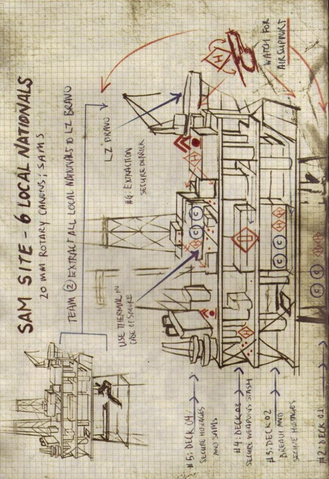 SAM SITE - 6 LOCAL NATIONALS
20 MM ROTARY CANONS; SAMS
TEAM 2 EXTRACT ALL LOCAL NATIONALS @ LZ BRAVO
LZ BRAVO
WATCH FOR
AIR SUPPORT
H
#6: EXTRACTION
USE THERMAL IN
CASE OF SMOKE
C C
C C
#5: DECK 04
SECURE HOSTAGES
AND SAMS
#4: DECK
SECURE WEAPONS STASH
#3: DECK 02
BREACH AND
SECURE HOSTAGES
#2: DECK 01